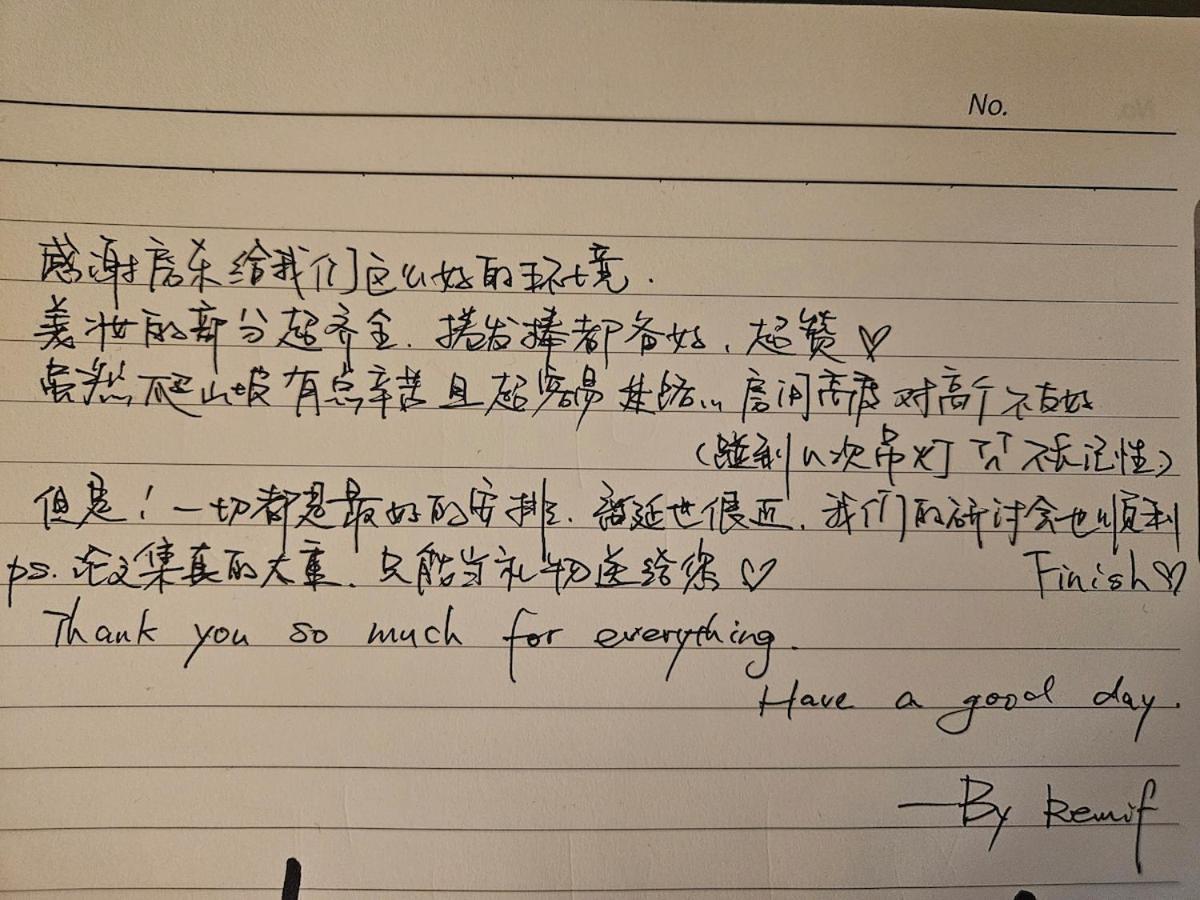 No.
感谢房东给我们这么好的环境.
美妆的部分超齐全.卷发棒都备好,超赞♡
虽然爬山坡有点辛苦且超容易迷路... 房间高度对高个不友好
(碰到n次吊灯 不长记性)
但是!一切都是最好的安排.离延世很近,我们的研讨会也顺利
Finish♡
ps.论文集真的太重.只能当礼物送给您♡
Thank you so much for everything.
Have a good day.
—By